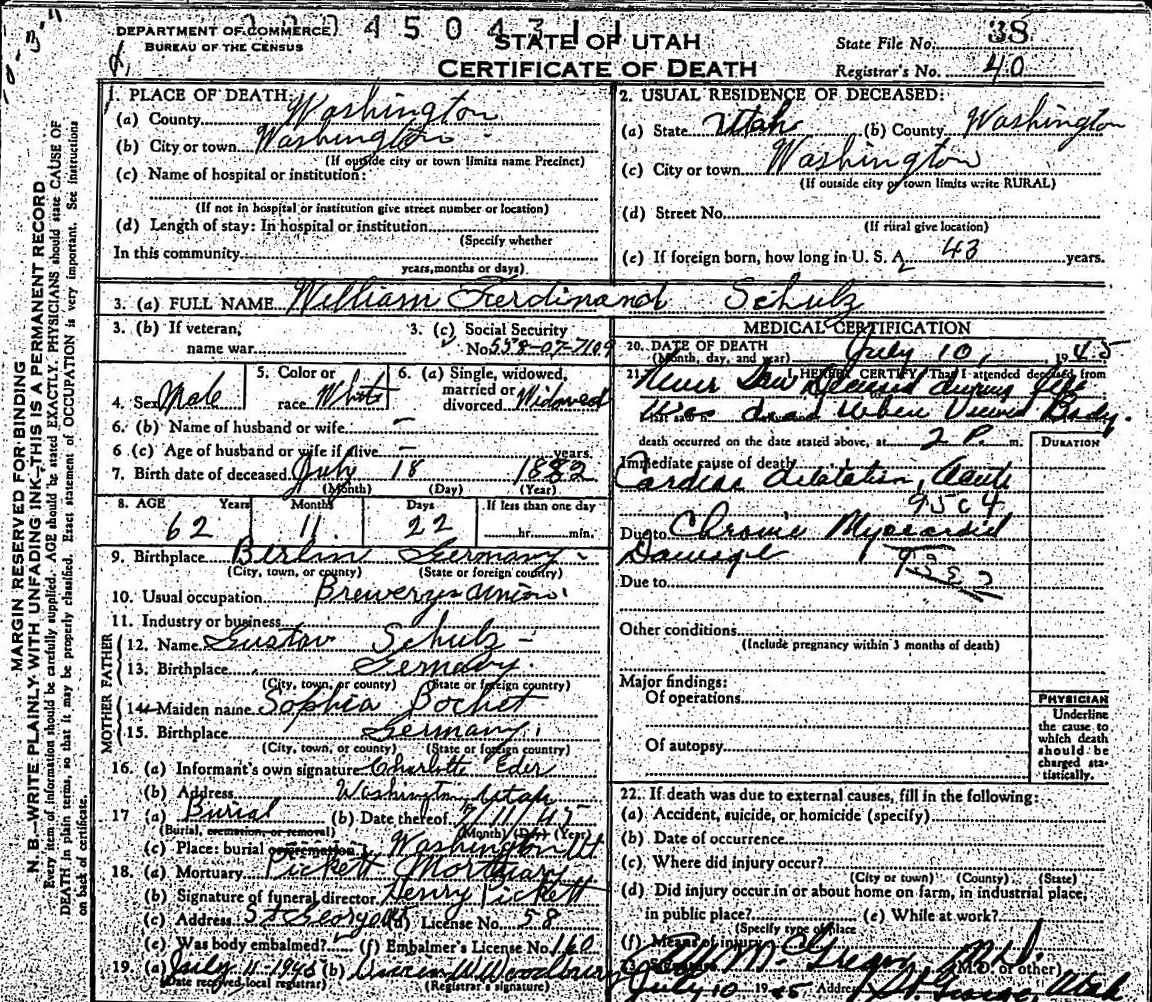 DEPARTMENT OF COMMERCE
BUREAU OF THE CENSUS
STATE OF UTAH
CERTIFICATE OF DEATH
State File No. 38
Registrar's No. 40
MARGIN RESERVED FOR BINDING
N. B.—WRITE PLAINLY WITH UNFADING INK—THIS IS A PERMANENT RECORD
Every item of information should be carefully supplied. AGE should be stated EXACTLY. PHYSICIANS should state CAUSE OF
DEATH in plain terms, so that it may be properly classified. Exact statement of OCCUPATION is very important. See instructions
on back of certificate.
1. PLACE OF DEATH:
(a) County Washington
(b) City or town Washington
(If outside city or town limits name Precinct)
(c) Name of hospital or institution:
(If not in hospital or institution give street number or location)
(d) Length of stay: In hospital or institution
(Specify whether
In this community
years, months or days)
2. USUAL RESIDENCE OF DECEASED:
(a) State Utah (b) County Washington
(c) City or town Washington
(If outside city or town limits write RURAL)
(d) Street No.
(If rural give location)
(e) If foreign born, how long in U. S. A. 43 years.
3. (a) FULL NAME William Ferdinand Schulz
3. (b) If veteran,
name war
3. (c) Social Security
No. 558-07-7109
4. Sex Male
5. Color or
race White
6. (a) Single, widowed,
married or
divorced Widowed
6. (b) Name of husband or wife —
6 (c) Age of husband or wife if alive — years.
7. Birth date of deceased July 18 1882
(Month) (Day) (Year)
8. AGE Years Months Days If less than one day
62 11 22 hr. min.
9. Birthplace Berlin Germany
(City, town, or county) (State or foreign country)
10. Usual occupation
11. Industry or business
FATHER
12. Name Gustav Schulz
13. Birthplace Germany
(City, town, or county) (State or foreign country)
MOTHER
14. Maiden name Sophia Bochet
15. Birthplace Germany
(City, town, or county) (State or foreign country)
16. (a) Informant's own signature Charlotte Eder
(b) Address Washington Utah
17 (a) Burial (b) Date thereof 7/11/45
(Burial, cremation, or removal) (Month) (Day) (Year)
(c) Place: burial or cremation Washington Ut
18. (a) Mortuary Pickett Mortuary
(b) Signature of funeral director Henry Pickett
(c) Address St George (d) License No. 58
(e) Was body embalmed? (f) Embalmer's License No. 160
19. (a) July 11-1945 (b)
(Date received local registrar) (Registrar's signature)
MEDICAL CERTIFICATION
20. DATE OF DEATH
(Month, day, and year) July 10, 1945
21. I HEREBY CERTIFY That I attended deceased from
Never Saw Deceased during life
Was dead when Viewed Body.
death occurred on the date stated above, at 2 P. m.
DURATION
Immediate cause of death
Cardiac dilatation, Acute
95c4
Due to Chronic Myocardial
Damage
Due to
Other conditions
(Include pregnancy within 3 months of death)
Major findings:
Of operations
Of autopsy
PHYSICIAN
Underline
the cause to
which death
should be
charged sta-
tistically.
22. If death was due to external causes, fill in the following:
(a) Accident, suicide, or homicide (specify)
(b) Date of occurrence
(c) Where did injury occur?
(City or town) (County) (State)
(d) Did injury occur in or about home on farm, in industrial place,
in public place? (e) While at work?
(Specify type of place
(f) Means of injury
M.D.
(M.D. or other)
July 10 1945 Address St. George, Utah